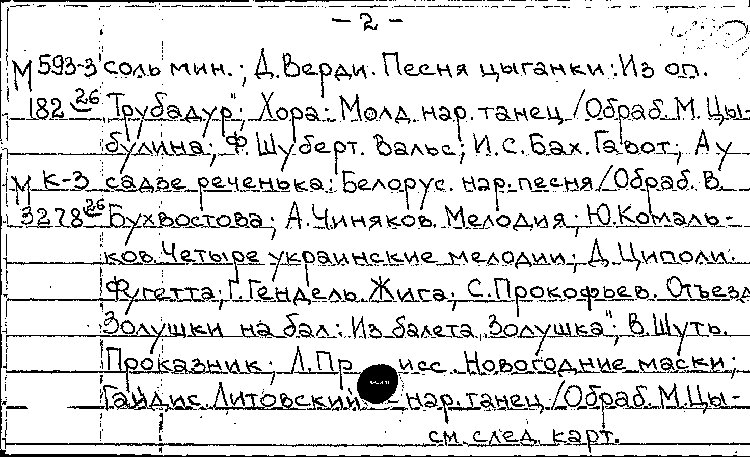 - 2 -
М 593-3 соль мин.; Д. Верди. Песня цыганки: Из оп.
182 26 Трубадур"; Хора: Молд. нар. танец /Обраб. М. Цы-
булина; Ф. Шуберт. Вальс; И.С. Бах. Гавот; Ау
М К-3 садзе реченька: Белорус. нар. песня /Обраб. В.
3278 26 Бухвостова; А. Чиняков. Мелодия; Ю. Комаль-
ков. Четыре украинские мелодии; Д. Циполи.
Фугетта; Г. Гендель. Жига; С. Прокофьев. Отъезд
Золушки на бал: Из балета „Золушка"; В. Шуть.
Проказник; Л. Пр исс. Новогодние маски;
Гайдис. Литовский нар. танец /Обраб. М. Цы-
см. след. карт.